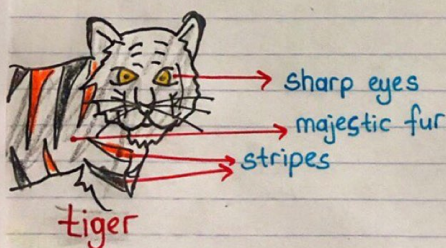 sharp eyes
majestic fur
stripes
tiger